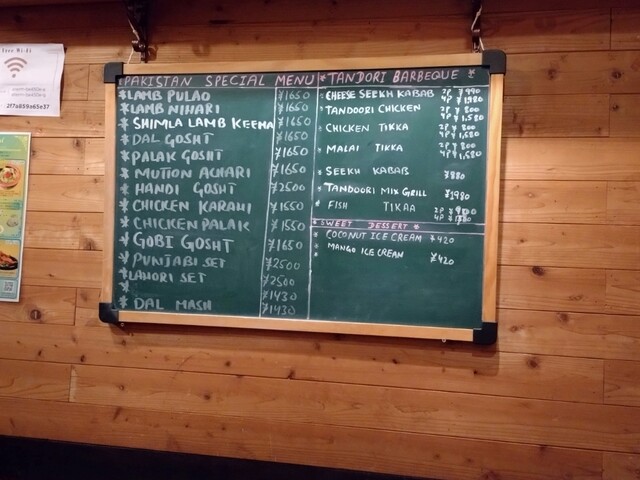 Free Wi-Fi
2f7a859a65e37
PAKISTAN SPECIAL MENU
* LAMB PULAO ¥1650
* LAMB NIHARI ¥1650
* SHIMLA LAMB KEEMA ¥1650
* DAL GOSHT ¥1650
* PALAK GOSHT ¥1650
* MUTTON ACHARI ¥1650
* HANDI GOSHT ¥2500
* CHICKEN KARAHI ¥1650
* CHICKEN PALAK ¥1550
* GOBI GOSHT ¥1650
* PUNJABI SET ¥2500
* LAHORI SET ¥2500
* ¥1430
* DAL MASH ¥1430
* TANDORI BARBEQUE *
* CHEESE SEEKH KABAB 2P ¥990
4P ¥1980
* TANDOORI CHICKEN 2P ¥800
4P ¥1,580
* CHICKEN TIKKA 2P ¥800
4P ¥1,580
* MALAI TIKKA 2P ¥800
4P ¥1,580
* SEEKH KABAB ¥880
* TANDOORI MIX GRILL ¥1980
* FISH TIKAA 2P
4P
* SWEET DESSERT *
* COCONUT ICE CREAM ¥420
* MANGO ICE CREAM ¥420